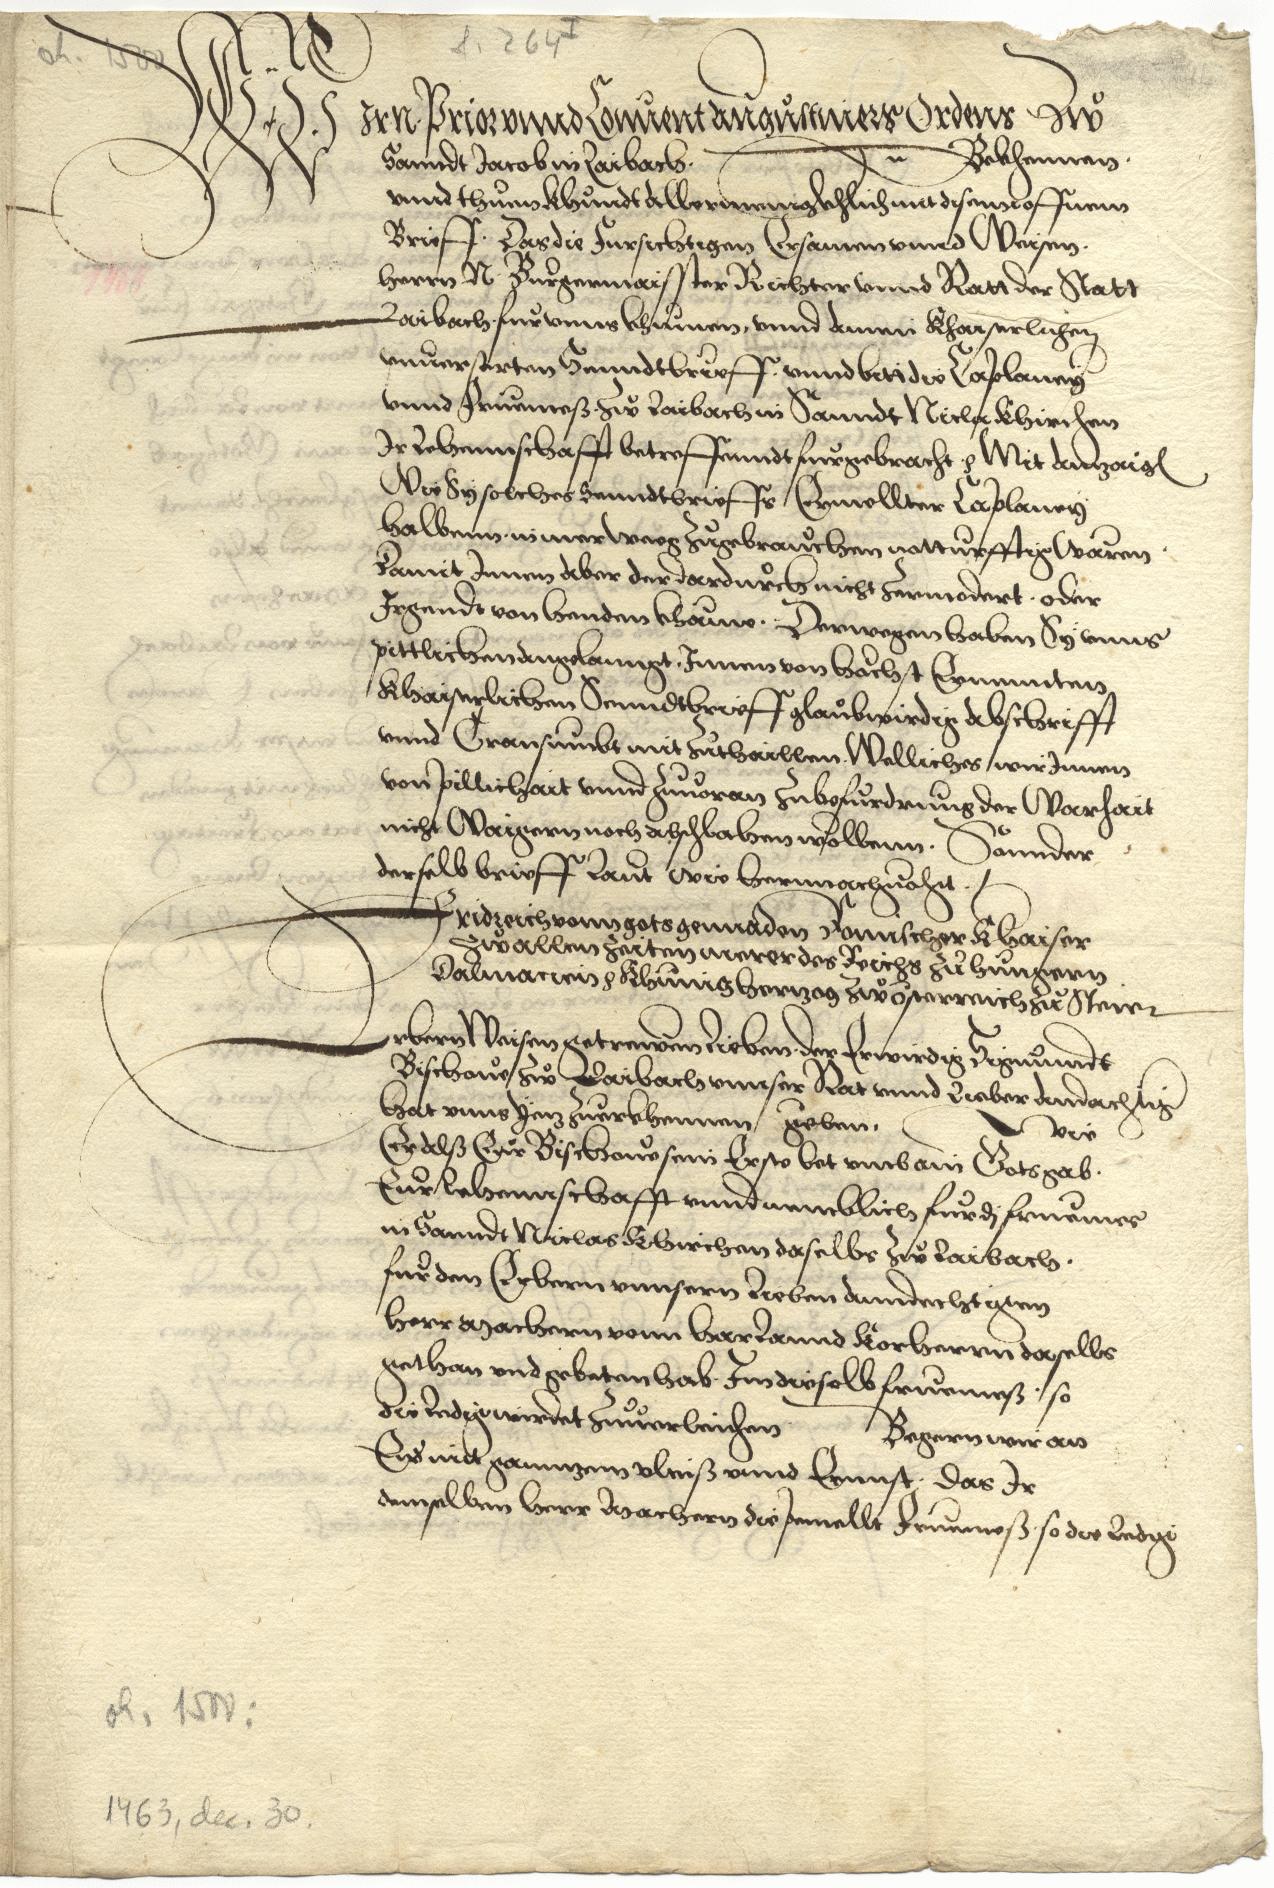 ok. 1500
f. 264 I
Wir N. Prior vnnd Conuent augustiners Ordens Zw
Sanndt Jacob in Laibach. Bekhennen.
vnnd thuen khundt Allermenigkhlich mit disem offnem
Brieff. Das die Fursichtigen Ersamen vnnd Weisen.
herrn N. Burgermaisster Richter vnnd Ratt der Statt
Laibach fur vnns khumen, vnnd ainen Khaiserlichen
vnuersertten Senndtbrieff. vnnd die Caplaney
vnnd Fruemeß Zw Laibach in Sanndt Niclas Khirchen
Ir Lehennschafft betreffenndt furgebracht, Mit Anzaigen
Wie Sy solches senndtbrieffs Ermellter Caplaney
halbenn. in mer weeg Zugebrauchen notturfftig waren.
Damit Innen aber der dardurch nicht Zermodert. oder
Irgendt von henden khäme. Derwegen haben Sy vnns
pittlichen angelanngt. Innen von höchst Ernennten
Khaiserlichen Senndtbrieff glaubwirdig Abschrifft
vnnd Transumbt mit Zuthaillen. Welliches wir Innen
von pillichait vnnd Zuuoran Zubefurdrung der Warhait
nicht Waigern noch Abschlahen wollenn. Sonnder
derselb brieff Laut wie hernnach
Fridreich vonn gots gennaden Romischer Khaiser
Zw allen Zeiten merer des Reichs Zu hungern
Dalmacien Khünig herzog Zw österreich Zu Steier
Erbern Weisen getrewen Lieben. der Erwirdig Sigmundt
Bischoue Zw Laibach vnnser Rat vnnd Lieber Andachtig
hat vnns Zuerkhennen geben. wie
Er Alß Eur Bischoue sein Erste bet vmb ain Gotsgab.
Eur Lehennschafft vnnd nemblich fur dj fruemes
in Sanndt Niclas Khirchen daselbs Zw Laibach.
fur den Erbern vnnsern Lieben Anndechtigen
herr vonn korherrn daselbs
gethan vnd gebeten hab. Im dieselb fruemeß. so
die Ledig wirdet Zuuerleichen Begern wir an
Ew mit gannzem vleiß vnnd Ernnst. das Ir
demselben herr die gemellt Fruemeß. so die Ledig
ok. 1500:
1463, dec. 30.